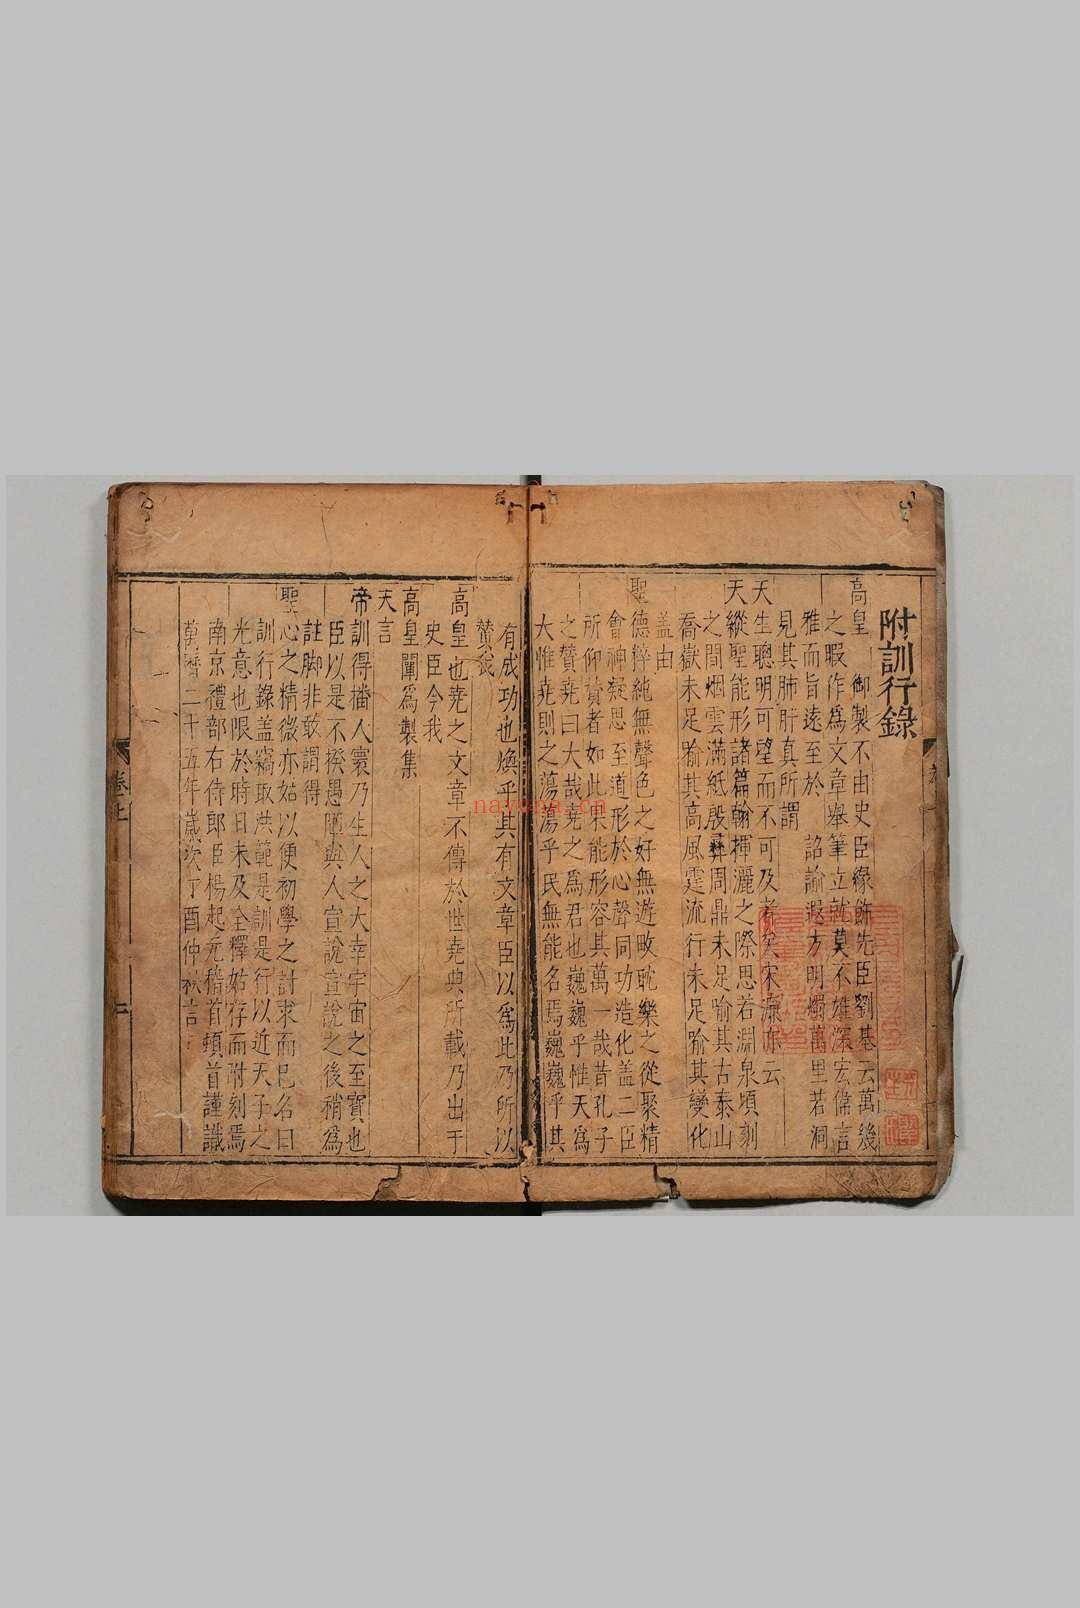 附訓行錄
高皇 御製不由史臣緣飾先臣劉基云萬幾
之暇作爲文章舉筆立就莫不雄深宏偉言
雅而旨遠至於 詔諭遐方明燭萬里若洞
見其肺肝真所謂
天生聰明可望而不可及者矣宋濂亦云
天縱聖能形諸篇翰揮灑之際思若淵泉頃刻
之間烟雲滿紙殷彝周鼎未足喻其古泰山
喬嶽未足喻其高風霆流行未足喻其變化
盖由
聖德粹純無聲色之好無遊畋耽樂之從聚精
會神凝思至道形於心聲同功造化盖二臣
所仰贊者如此果能形容其萬一哉昔孔子
之贊堯曰大哉堯之爲君也巍巍乎惟天爲
大惟堯則之蕩蕩乎民無能名焉巍巍乎其
有成功也煥乎其有文章臣以爲此乃所以
贊我
高皇也堯之文章不傳於世堯典所載乃出于
史臣今我
高皇闡爲製集
天言
帝訓得播人寰乃生人之大幸宇宙之至寶也
臣以是不揆愚陋與人宣說宣說之後稍爲
註脚非敢謂得
聖心之精微亦姑以便初學之討求而已名曰
訓行錄盖竊取洪範是訓是行以近天子之
光意也限於時日未及全釋姑存而附刻焉
南京禮部右侍郎臣楊起元稽首頓首謹識
萬曆二十五年歲次丁酉仲秋言
卷上
nayona.cn